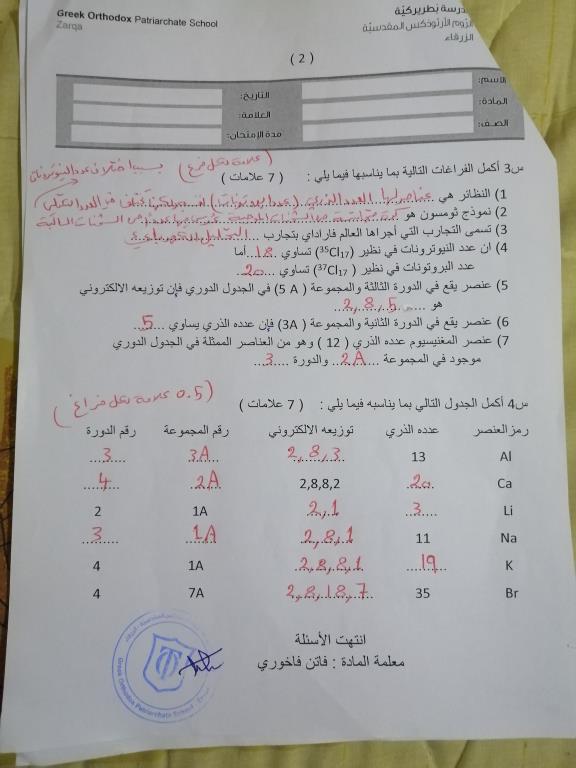 Greek Orthodox Patriarchate School
Zarqa
مدرسة بطريركية
الروم الأرثوذكس المقدسية
الزرقاء
( 2 )
الاسم:
التاريخ:
المادة:
العلامة:
الصف:
مدة الإمتحان:
(علامة لكل فرع)
س3 أكمل الفراغات التالية بما يناسبها فيما يلي : ( 7 علامات )
بسبب اختلاف عدد النيوترونات
1) النظائر هي عناصر لها العدد الذري (عدد بروتونات) نفسه ولكنها تختلف في العدد الكتلي
2) نموذج ثومسون هو كرة متجانسة من الشحنات الموجبة غرس بها عدد من الشحنات السالبة
3) تسمى التجارب التي أجراها العالم فاراداي بتجارب التحليل الكهربائي
4) ان عدد النيوترونات في نظير (³⁵Cl₁₇) تساوي 18 أما
عدد البروتونات في نظير (³⁷Cl₁₇) تساوي 20
5) عنصر يقع في الدورة الثالثة والمجموعة ( 5 A) في الجدول الدوري فإن توزيعه الالكتروني
هو 2,8,5
6) عنصر يقع في الدورة الثانية والمجموعة ( 3A) فإن عدده الذري يساوي 5
7) عنصر المغنيسيوم عدده الذري ( 12 ) وهو من العناصر الممثلة في الجدول الدوري
موجود في المجموعة 2A والدورة 3
(0.5 علامة لكل فراغ)
س4 أكمل الجدول التالي بما يناسبه فيما يلي : ( 7 علامات )
رمز العنصر عدده الذري توزيعه الالكتروني رقم المجموعة رقم الدورة
Al 13 2,8,3 3A 3
Ca 20 2,8,8,2 2A 4
Li 3 2,1 1A 2
Na 11 2,8,1 1A 3
K 19 2,8,8,1 1A 4
Br 35 2,8,18,7 7A 4
انتهت الأسئلة
معلمة المادة : فاتن فاخوري
Greek Orthodox Patriarchate School